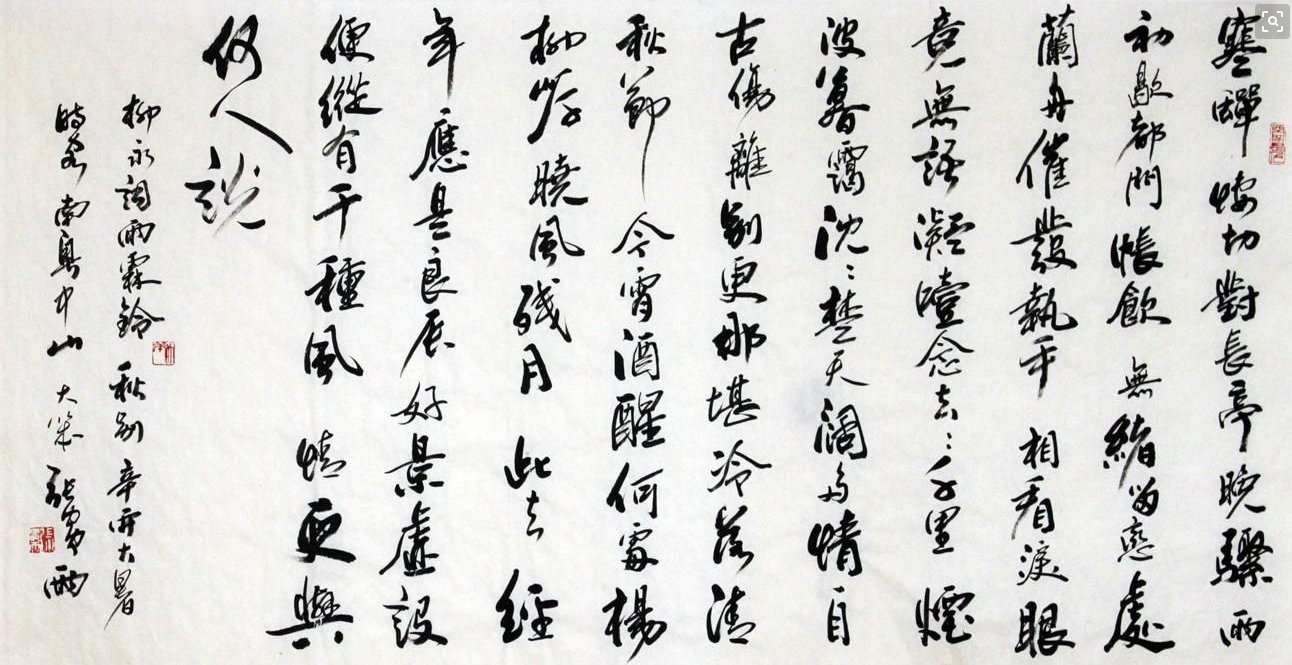 寒蟬悽切對長亭晚驟雨
初歇都門帳飲無緒留戀處
蘭舟催發執手相看淚眼
竟無語凝噎念去々千里煙
波暮靄沈々楚天闊多情自
古傷離別更那堪冷落清
秋節今宵酒醒何處楊
柳岸曉風殘月此去經
年應是良辰好景虛設
便縱有千種風情更與
何人說
柳永詞雨霖鈴秋別辛卯大暑
時客南粵中山大策張雨